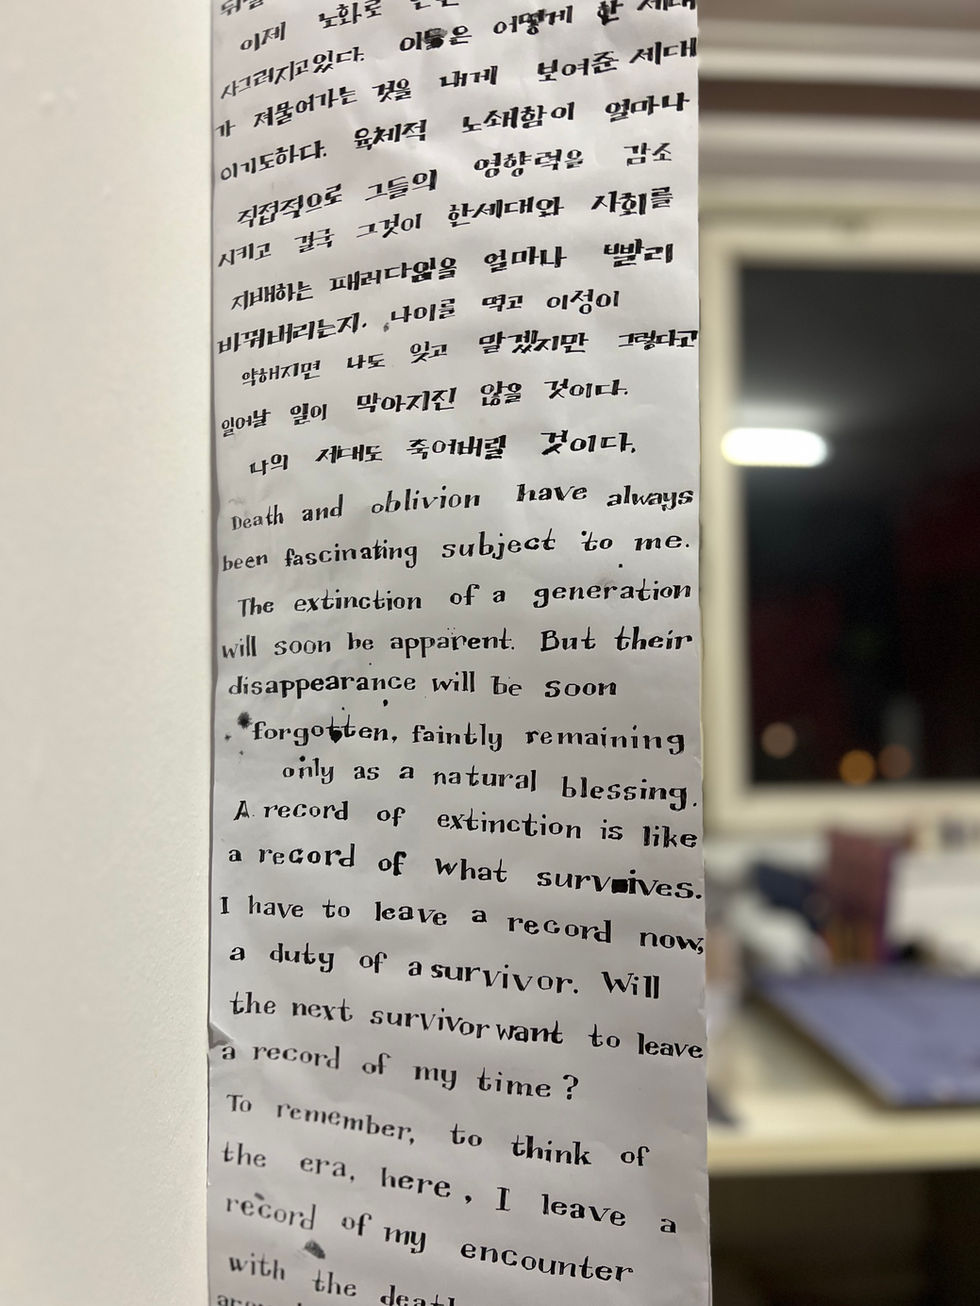 이제 노화로
사그러지고있다. 이들은 어떻게 한 세대
가 저물어가는 것을 내게 보여준 세대
이기도하다. 육체적 노쇄함이 얼마나
직접적으로 그들의 영향력을 감소
시키고 결국 그것이 한세대와 사회를
지배하는 패러다임을 얼마나 빨리
바꿔버리는지. 나이를 먹고 이성이
약해지면 나도 잊고 말겠지만 그렇다고
일어날 일이 막아지진 않을 것이다.
나의 세대도 죽어버릴 것이다.
Death and oblivion have always
been fascinating subject to me.
The extinction of a generation
will soon be apparent. But their
disappearance will be soon
forgotten, faintly remaining
only as a natural blessing.
A record of extinction is like
a record of what survives.
I have to leave a record now,
a duty of a survivor. Will
the next survivor want to leave
a record of my time?
To remember, to think of
the era, here, I leave a
record of my encounter
with the